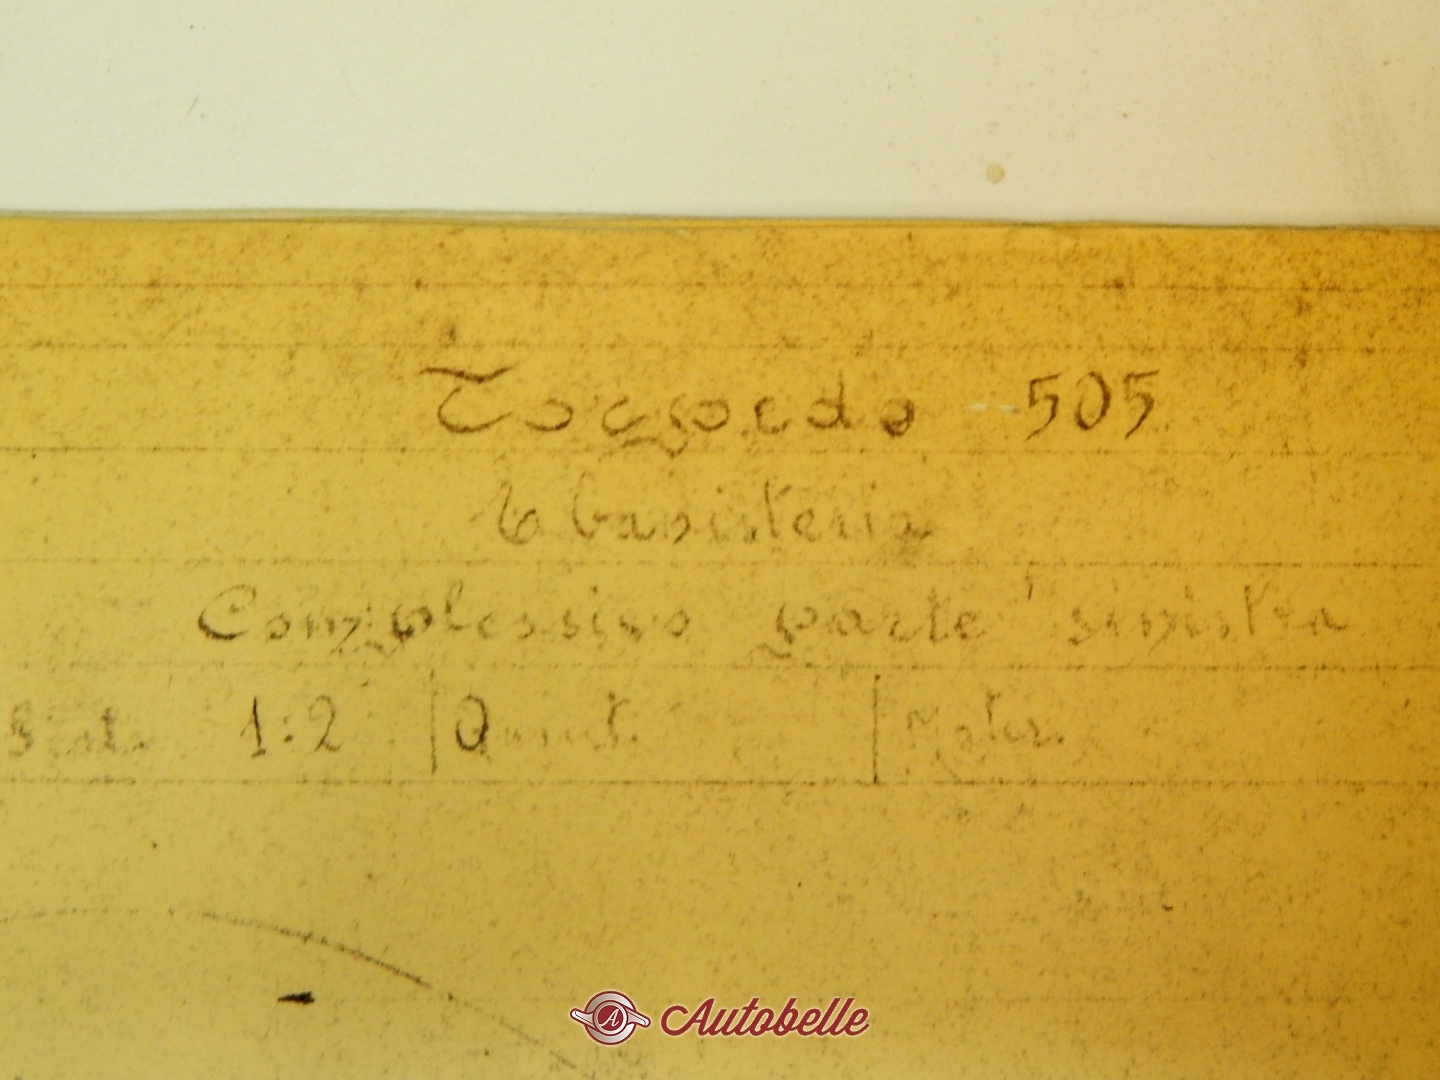 Torpedo 505
Ebanisteria
Complessivo parte sinistra
Scala 1:2 Quant. Mater.
Autobelle